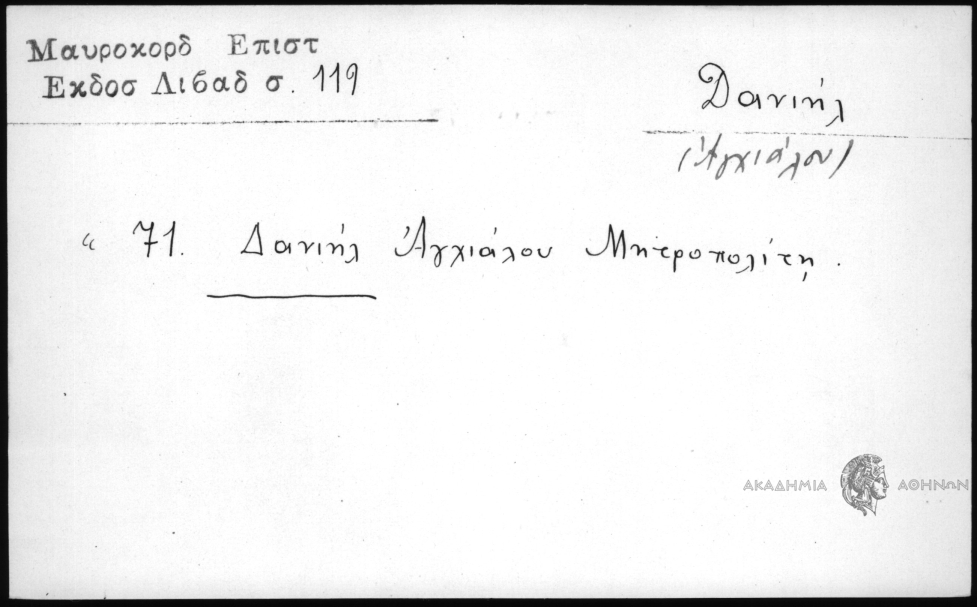 Μαυροκορδ Επιστ
Εκδοσ Λιβαδ σ. 119
Δανιήλ
(Ἀγχιάλου)
“ 71. Δανιήλ Ἀγχιάλου Μητροπολίτῃ.
ΑΚΑΔΗΜΙΑ ΑΘΗΝΩΝ